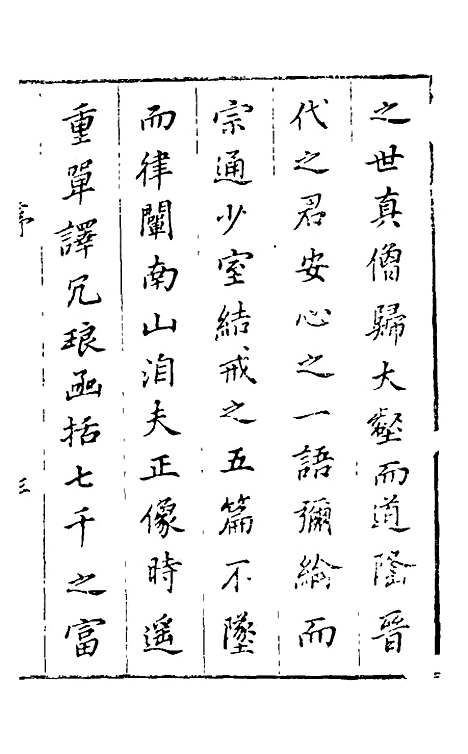 之世真僧歸大壑而道隆晉
代之君安心之一語彌綸而
宗通少室結戒之五篇不墜
而律闡南山洎夫正像時遥
重單譯冗琅函括七千之富
序
三